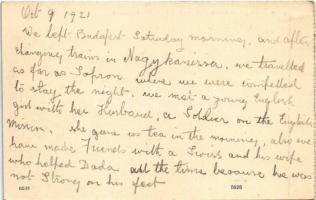 Oct 9 1921
We left Budapest Saturday morning, and after
changing trains in Nagykanizsa, we travelled
as far as Sopron where we were compelled
to stay the night. we met a young English
girl with her Husband, a Soldier on the English
Mission. She gave us tea in the morning, also we
have made Friends with a Swiss and his wife
who helped Dada all the time because he was
not Strong on his feet